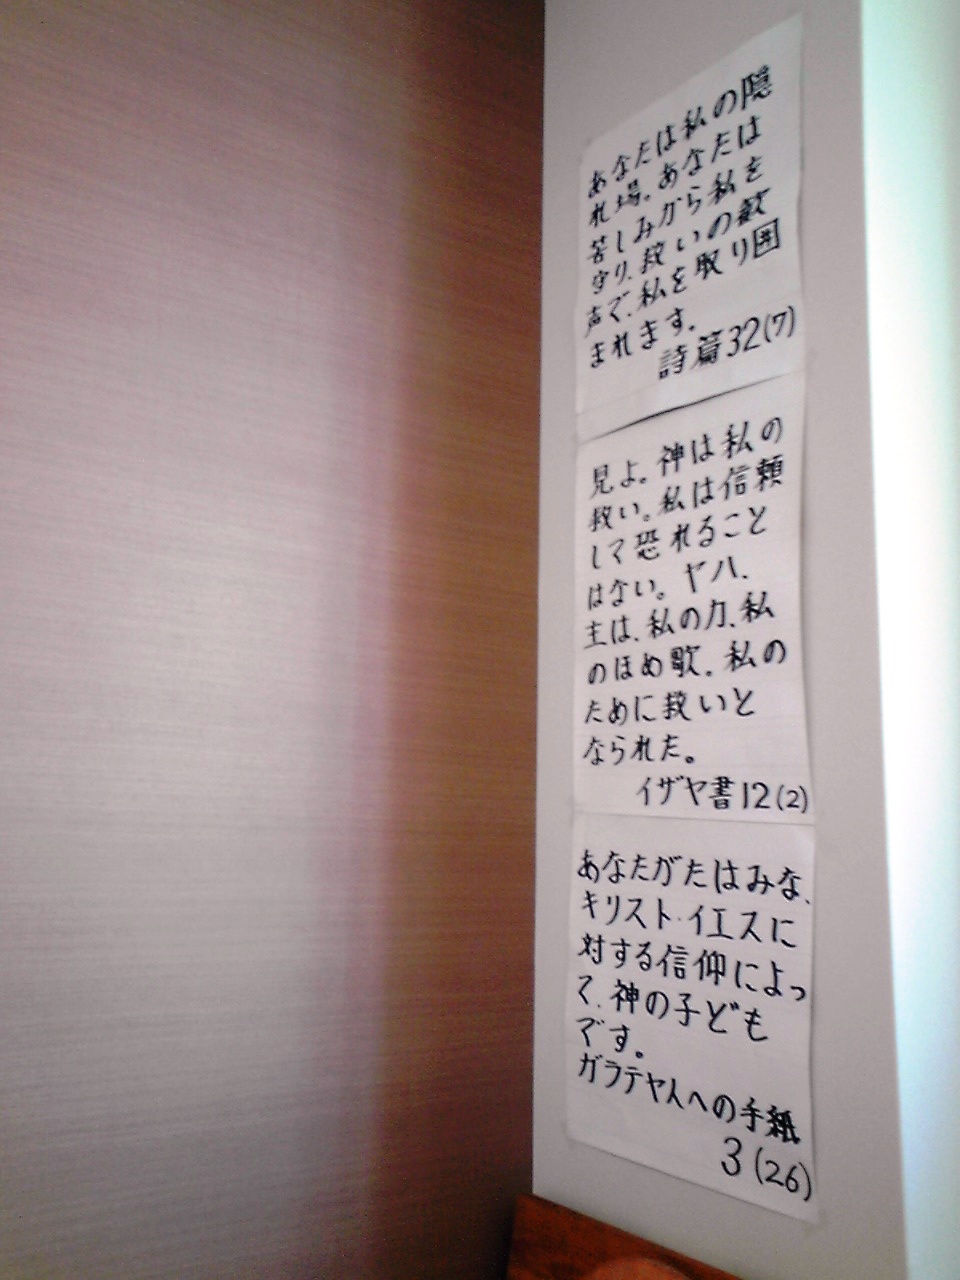 あなたは私の隠
れ場。あなたは
苦しみから私を
守り、救いの歓
声で、私を取り囲
まれます。
詩篇32(7)
見よ。神は私の
救い。私は信頼
して恐れること
はない。ヤハ、
主は、私の力、私
のほめ歌。私の
ために救いと
なられた。
イザヤ書12(2)
あなたがたはみな、
キリスト・イエスに
対する信仰によっ
て、神の子ども
です。
ガラテヤ人への手紙
3(26)